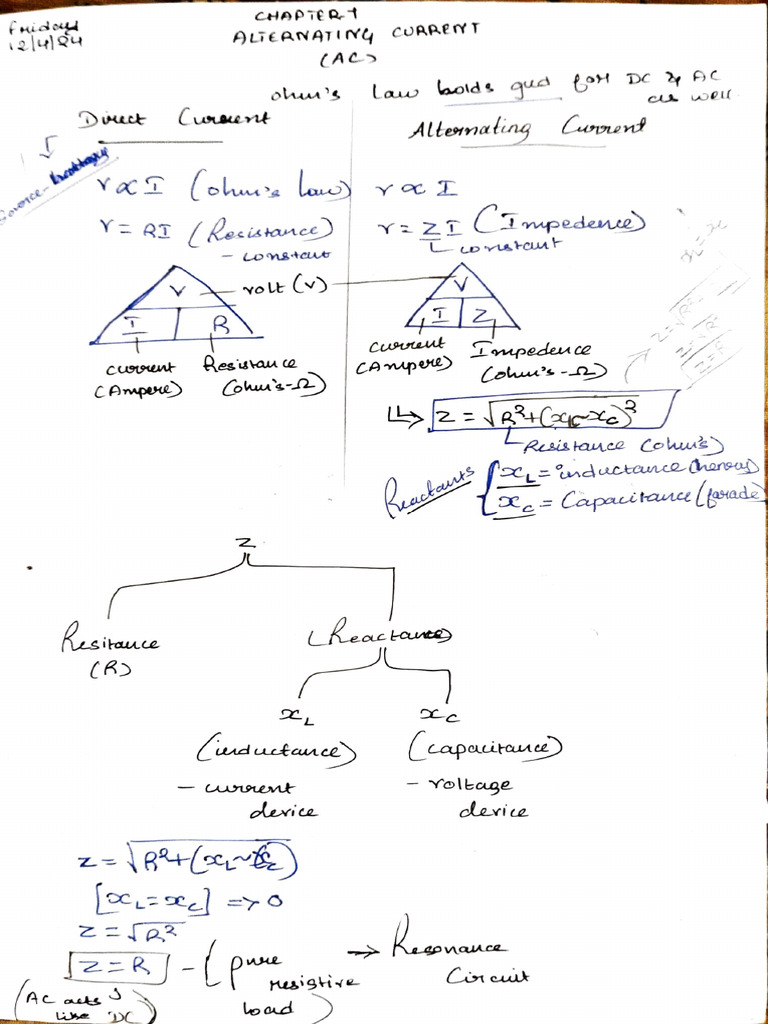 Friday
12/4/24
CHAPTER-7
ALTERNATING CURRENT
(AC)
ohm's Law holds gud for DC & AC
as well.
Direct Current
Source - battery
V ∝ I (ohm's law)
V = RI (Resistance)
- constant
V
I R
volt (V)
current
(Ampere)
Resistance
(ohm's - Ω)
Alternating Current
V ∝ I
V = ZI (Impedence)
constant
V
I Z
current
(Ampere)
Impedence
(ohm's - Ω)
Z = √R²
Z = R
Z = √R²+(xL~xC)²
Resistance (ohm's)
Reactants
xL = inductance (henry)
xC = Capacitance (farade)
Z
Resitance
(R)
(Reactance)
xL
(inductance)
- current
device
xC
(capacitance)
- voltage
device
Z = √R²+(xL~xC)
[xL = xC] => 0
Z = √R²
Z = R - (pure
resistive
load)
→ Resonance
Circuit
(AC acts
like DC)